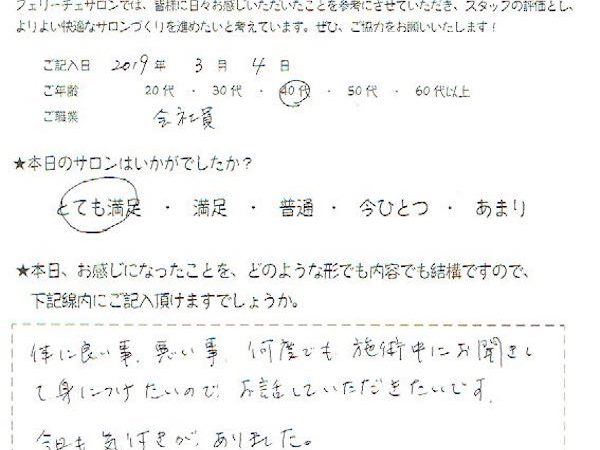 フェリーチェサロンでは、皆様に日々お感じいただいたことを参考にさせていただき、スタッフの評価とし、
よりよい快適なサロンづくりを進めたいと考えています。ぜひ、ご協力をお願いいたします！
ご記入日 2019 年 3 月 4 日
ご年齢 20代 ・ 30代 ・ 40代 ・ 50代 ・ 60代以上
ご職業 会社員
★本日のサロンはいかがでしたか？
とても満足 ・ 満足 ・ 普通 ・ 今ひとつ ・ あまり
★本日、お感じになったことを、どのような形でも内容でも結構ですので、
下記線内にご記入頂けますでしょうか。
体に良い事、悪い事、何度でも施術中にお聞きし
て身につけたいので、お話していただきたいです。
今日も気付きがありました。